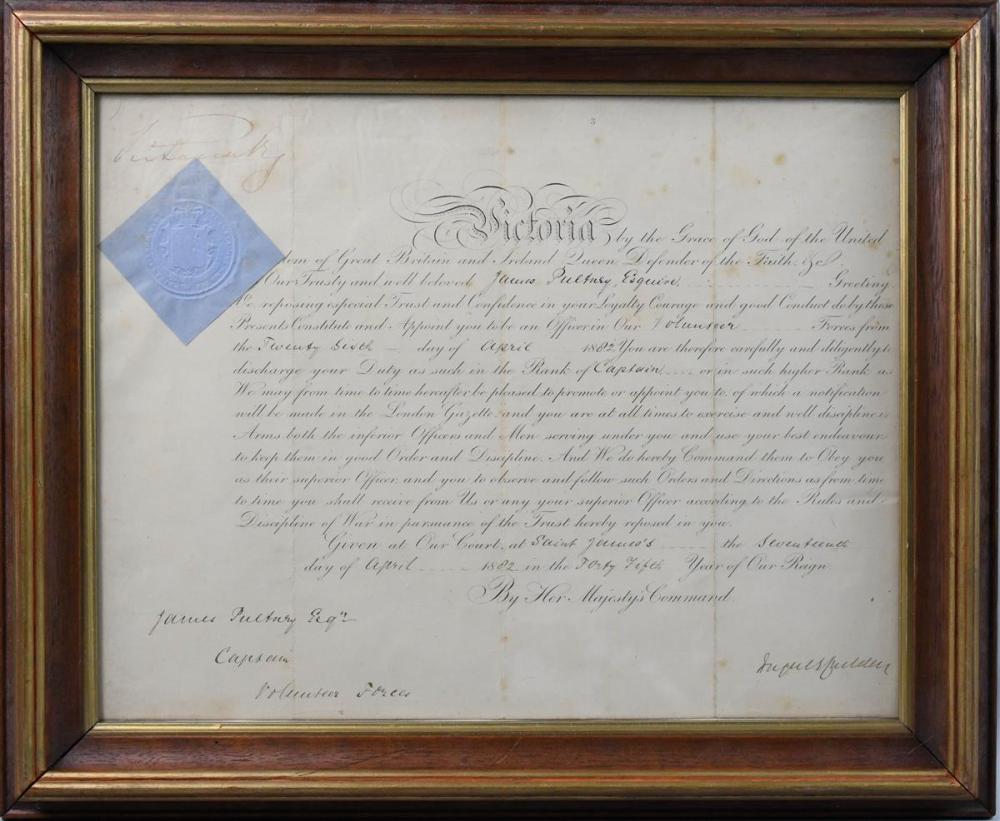 3
Victoria Rg
Victoria by the Grace of God of the United
dom of Great Britain and Ireland Queen Defender of the Faith &c
Our Trusty and well beloved James Pultney Esquire Greeting
We, reposing especial Trust and Confidence in your Loyalty Courage and good Conduct do by these
Presents Constitute and Appoint you to be an Officer in Our Volunteer Forces from
the Twenty Sixth day of April 1882 You are therefore carefully and diligently to
discharge your Duty as such in the Rank of Captain or in such higher Rank as
We may from time to time hereafter be pleased to promote or appoint you to, of which a notification
will be made in the London Gazette, and you are at all times to exercise and well discipline in
Arms both the inferior Officers and Men serving under you and use your best endeavours
to keep them in good Order and Discipline. And We do hereby Command them to Obey you
as their superior Officer, and you to observe and follow such Orders and Directions as from time
to time you shall receive from Us or any your superior Officer according to the Rules and
Discipline of War in pursuance of the Trust hereby reposed in you.
Given at Our Court, at Saint James's the Seventeenth
day of April 1882 in the Forty Fifth Year of Our Reign
By Her Majesty's Command.
James Pultney Esqr
Captain
Volunteer Forces